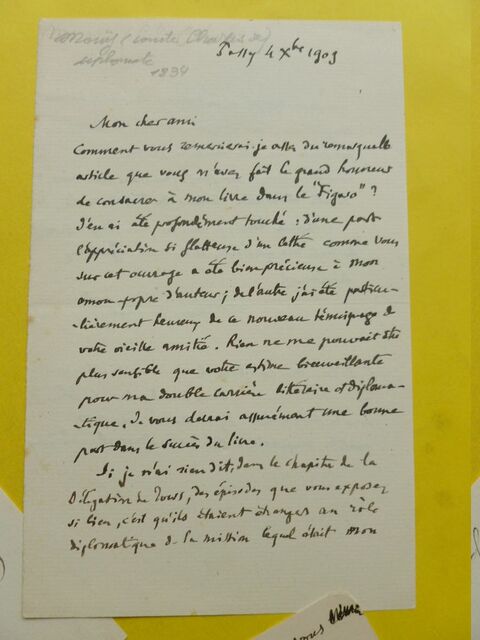 comte (Charles de)
diplomate
1834
Passy 4 Xbre 1903
Mon cher ami
Comment vous remercierai-je assez du remarquable
article que vous m'avez fait le grand honneur
de consacrer à mon livre dans le "Figaro" ?
J'en ai été profondément touché : d'une part
l'appréciation si flatteuse d'un lettré comme vous
sur cet ouvrage a été bien précieuse à mon
amour-propre d'auteur ; de l'autre j'ai été particu-
-lièrement heureux de ce nouveau témoignage de
votre vieille amitié. Rien ne me pouvait être
plus sensible que votre estime bienveillante
pour ma double carrière littéraire et diploma-
-tique. Je vous devrai assurément une bonne
part dans le succès du livre.
Si je n'ai rien dit, dans le chapitre de la
Délégation de Tours, des épisodes que vous exposez
si bien, c'est qu'ils étaient étrangers au rôle
diplomatique de la mission lequel était mon